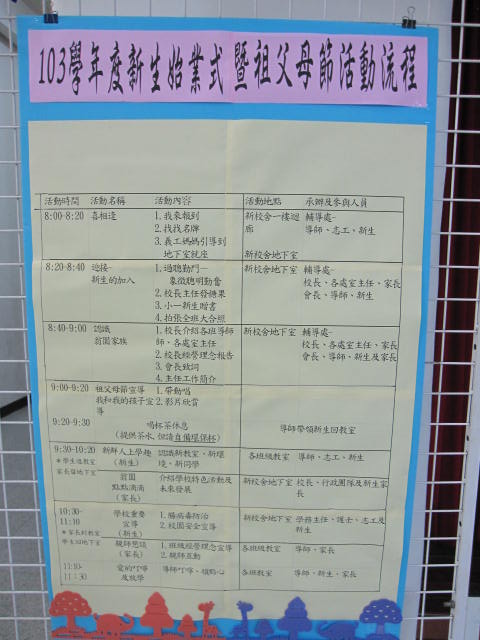 103學年度新生始業式暨祖父母節活動流程
活動時間 活動名稱 活動內容 活動地點 承辦及參與人員
8:00-8:20 喜相逢 1.我來報到 新校舍一樓迴 輔導處-
2.找找名牌 廊 導師、志工、新生
3.義工媽媽引導到
地下室就座 新校舍地下室
8:20-8:40 迎接- 1.過聰勤門— 新校舍地下室 輔導處-
新生的加入 象徵聰明勤奮 校長、各處室主任、家長
2.校長主任發糖果 會長、導師、新生
3.小一新生贈書
4.拍張全班大合照
8:40-9:00 認識 1.校長介紹各班導師 新校舍地下室 輔導處-
家族 師、各處室主任 校長、各處室主任、家長
2.校長經營理念報告 會長、導師、新生及家長
3.會長致詞
4.主任工作簡介
9:00-9:20 祖父母節宣導 1.帶動唱
我和我的孩子宣 2.影片欣賞
導
9:20-9:30 喝杯茶休息 導師帶領新生回教室
(提供茶水,但請自備環保杯)
9:30-10:20 新鮮人上學趣 認識新教室、新環 各班教室 導師、志工、新生
*學生進教室 (新生) 境、新同學
家長留地下室 點點滴滴 介紹學校特色活動及 新校舍地下室 校長、行政團隊及新生家
(家長) 未來發展 長
10:30- 學校重要 1.腸病毒防治 新校舍地下室 學務主任、護士、志工及
11:10 宣導 2.校園安全宣導 新生
*家長到教室 (新生)
學生回地下室 親師懇談 1.班級經營理念宣導 各班級教室 導師、家長
(家長) 2.親師互動
11:10- 愛的叮嚀 導師叮嚀、 各班教室 導師、新生、家長
11:30 及放學